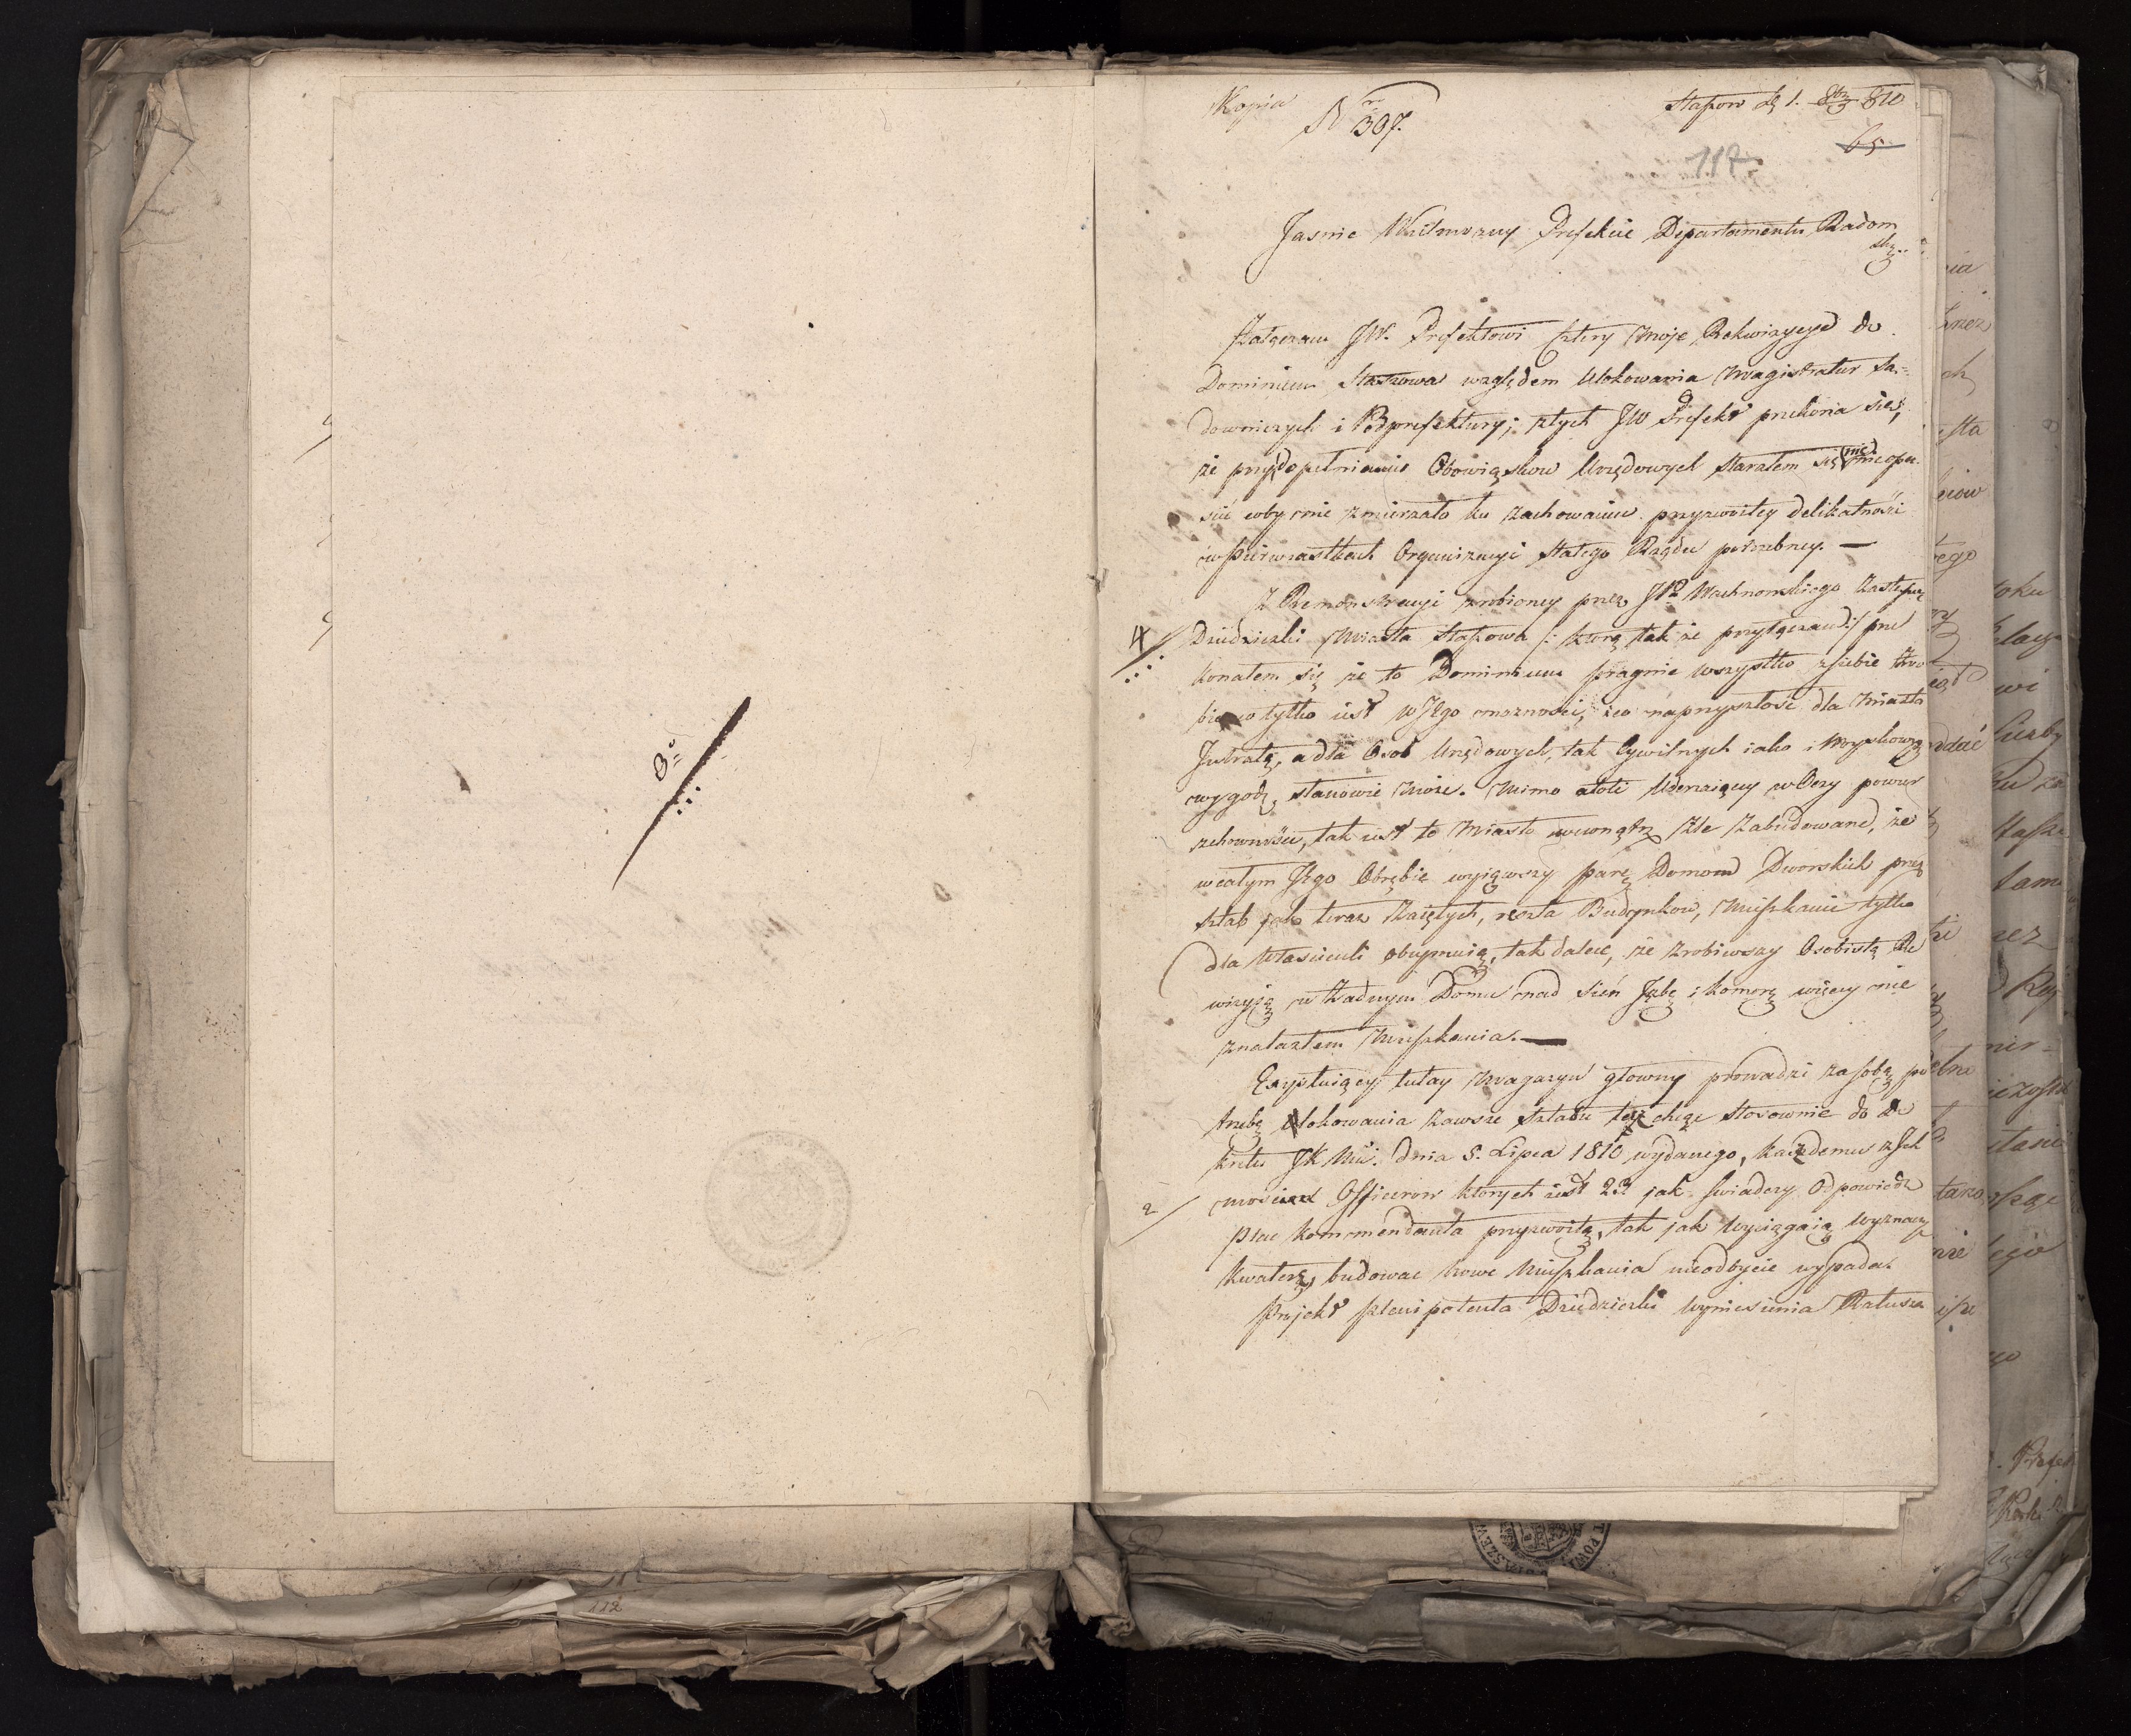 3o
Kopja
Nr 397.
Staszow d. 1. 8bra 810
65
117
Jasnie Wielmozny Prefekcie Departamentu Radom
sk.
Załączam JW. Prefektowi cztery moje Rekwizycye do
Dominium Staszowa względem Ulokowania Magistratur Są=
downiczych i Podprefektury; z tych JW Prefekt przekona się,
że przy dopełnianiu Obowiązkow Urzędowych starałem się nic nieopu
scić coby nie zmierzało ku zachowaniu przyzwoitey delikatności
w pierwiastkach Organizacyi stałego Rządu potrzebney. —
Z Remonstracyi zrobioney przez JP Machnowskiego Zastępcę
4 Dziedziczki Miasta Staszowa /: ktorą tak że przyłączam :/ prze
konałem się że to Dominium pragnie wszystko z siebie zro
bić co tylko iest w Jego możności, co na przyszłość dla Miasta
Intratę, a dla Osob Urzędowych, tak Cywilnych iako i Woyskowych
wygodę stanowić może. Mimo atoli Uderzaiącey w Oczy powier
zchowności, tak iest to Miasto wewnątrz źle Zabudowane, że
w całym Jego Obrębie wyiąwszy parę Domow Dworskich przez
sztab jak teraz Zaiętych, reszta Budynkow, Mieszkanie tylko
dla Właścicieli obeymuią, tak dalece, że zrobiwszy Osobistą Re
wizyją w Żadnym Domu nad sień Izbę i komorę więcey nie
znalazłem Mieszkania. —
Exystuiący tutay Magazyn głowny prowadzi za sobą po
trzebę Ulokowania zawsze Sztabu chcąc stosownie do De
kretu JK Mci. dnia 5. Lipca 1810 wydanego, każdemu z Ich
2 mosciow Officerow ktorych iest 23 jak świadczy Odpowiedz
Plac kommendanta przyzwoitą, tak jak wyciągaią wyznaczyć
kwaterę, budować nowe Mieszkania nieodbycie wypada.
Projekt Plenipotenta Dziedziczki wyniesienia Ratusza
112